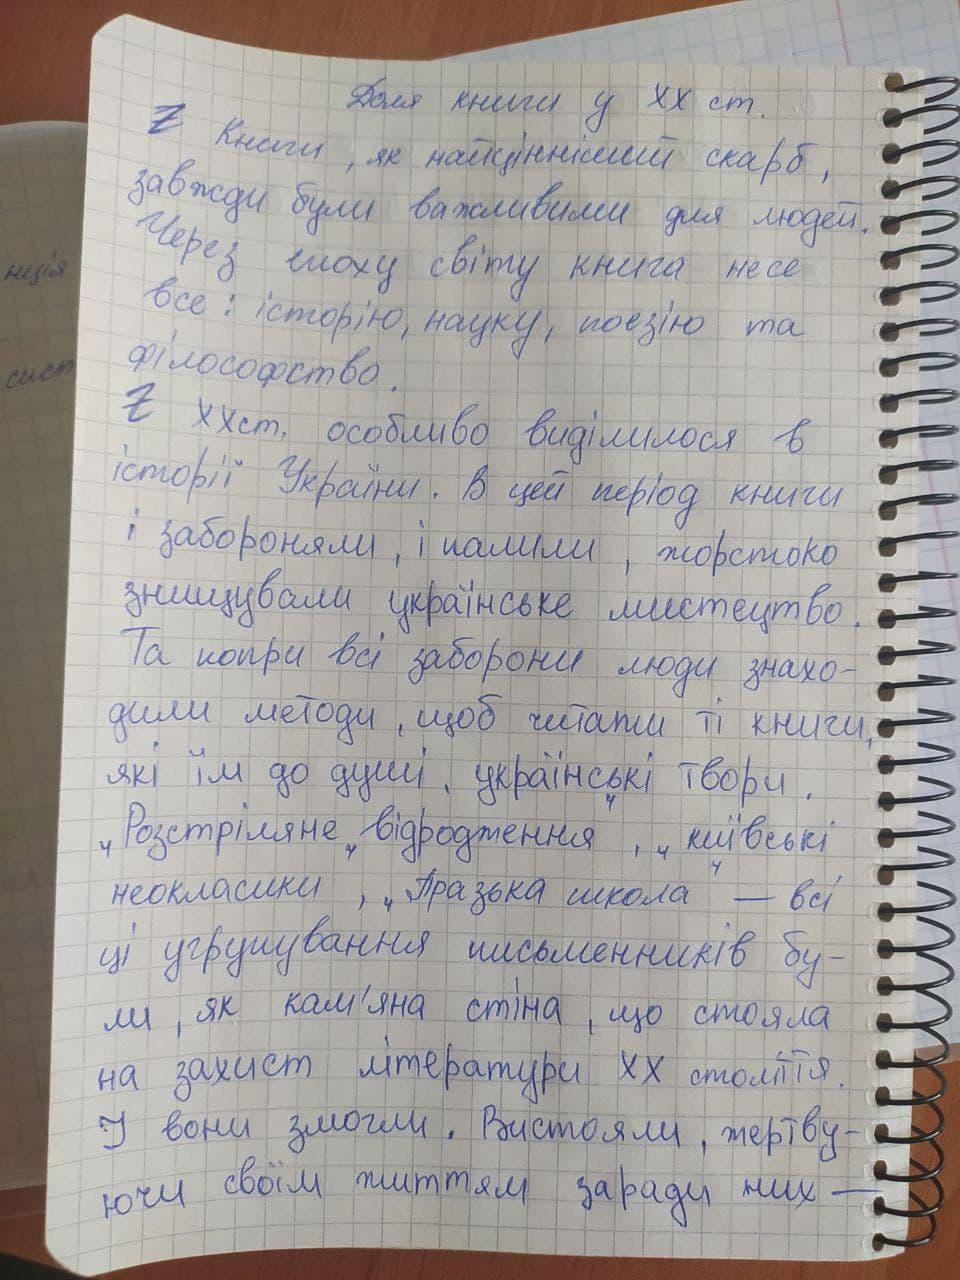 Доля книги у ХХ ст.
Z Книги, як найцінніший скарб,
завжди були важливими для людей.
Через епоху світу книга несе
все: історію, науку, поезію та
філософство.
Z ХХст. особливо виділилося в
історії України. В цей період книги
і забороняли, і палили, жорстоко
знищували українське мистецтво.
Та попри всі заборони люди знахо-
дили методи, щоб читати ті книги,
які їм до душі, українські твори.
„Розстріляне „відродження", „київські
неокласики", „Празька школа" — всі
ці угрупування письменників бу-
ли, як кам'яна стіна, що стояла
на захист літератури ХХ століття.
І вони змогли. Вистояли, жертву-
ючи своїм життям заради них —
нція
сист